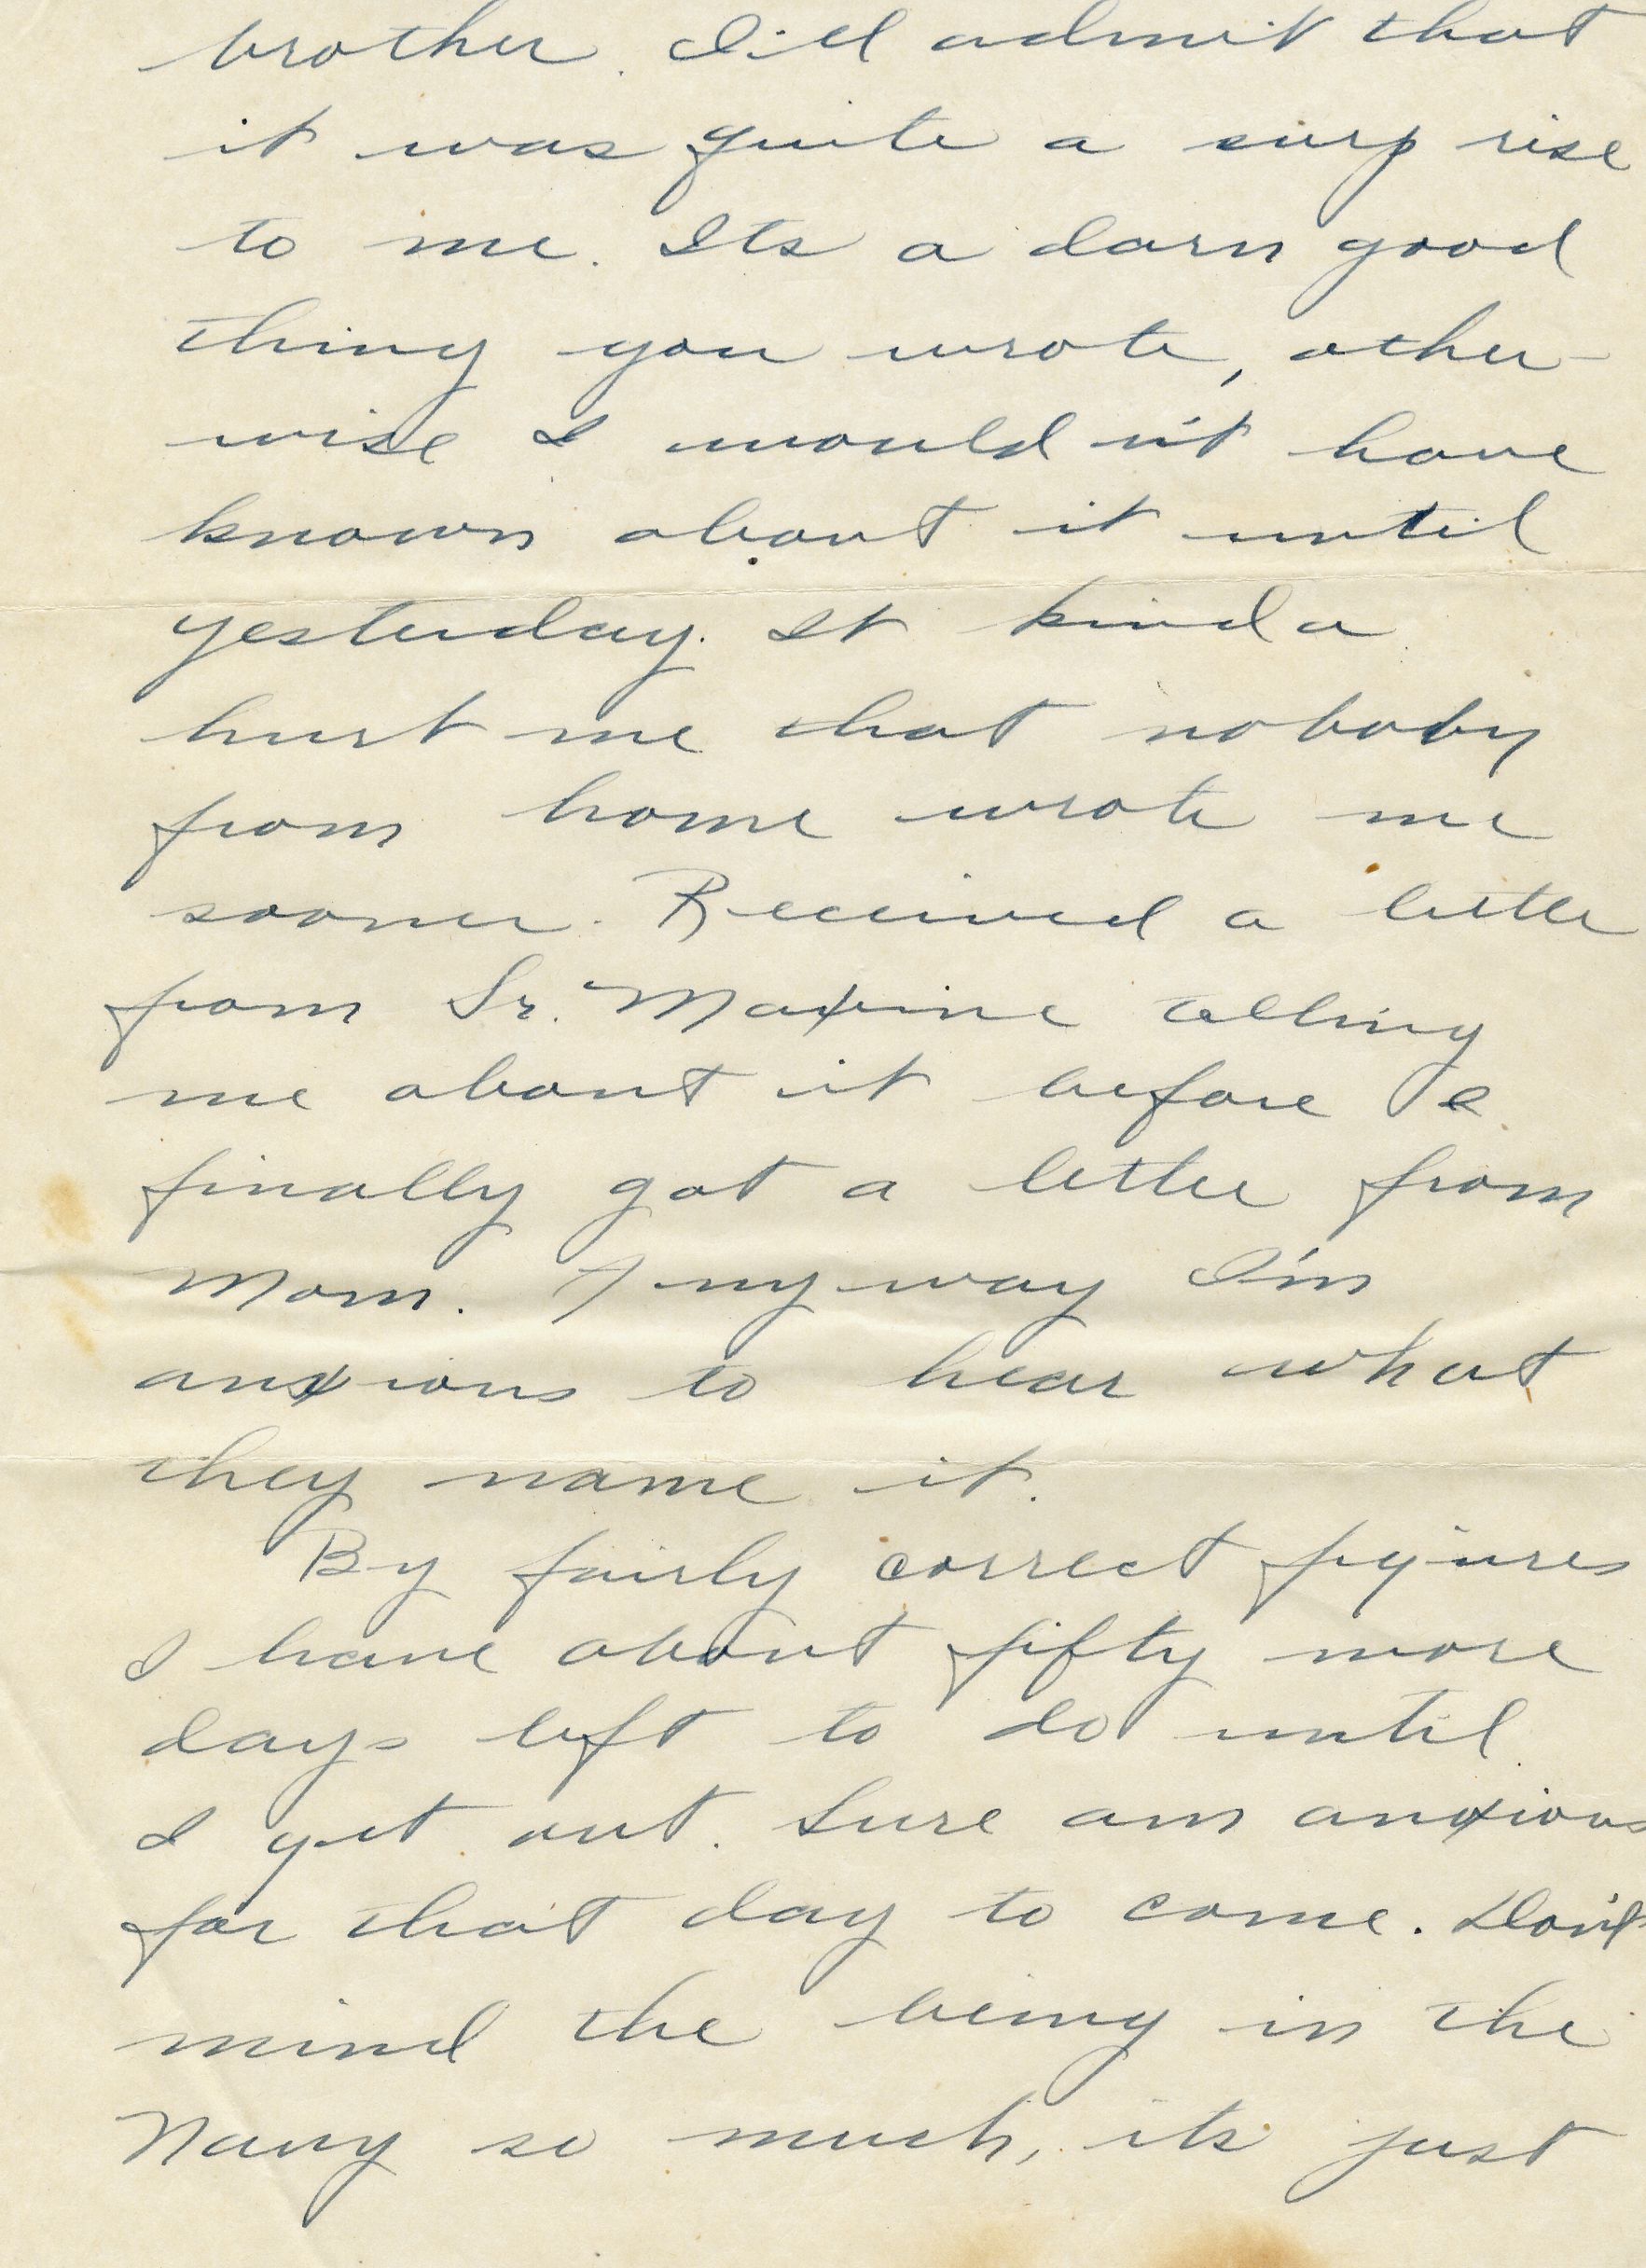 brother. I'll admit that
it was quite a surprise
to me. Its a darn good
thing you wrote, other-
wise I would n't have
known about it until
yesterday. It kinda
hurt me that noboby
from home wrote me
sooner. Received a letter
from Sr. Maxine telling
me about it before I
finally got a letter from
Mom. Anyway I'm
anxious to hear what
they name it.
By fairly correct figures
I have about fifty more
days left to do until
I get out. Sure am anxious
for that day to come. Don't
mind the being in the
Navy so much, its just